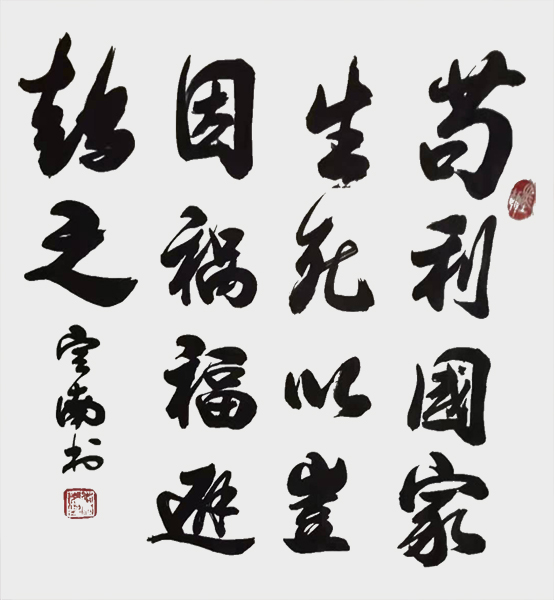 苟利國家
生死以豈
因禍福避
趨之
南书